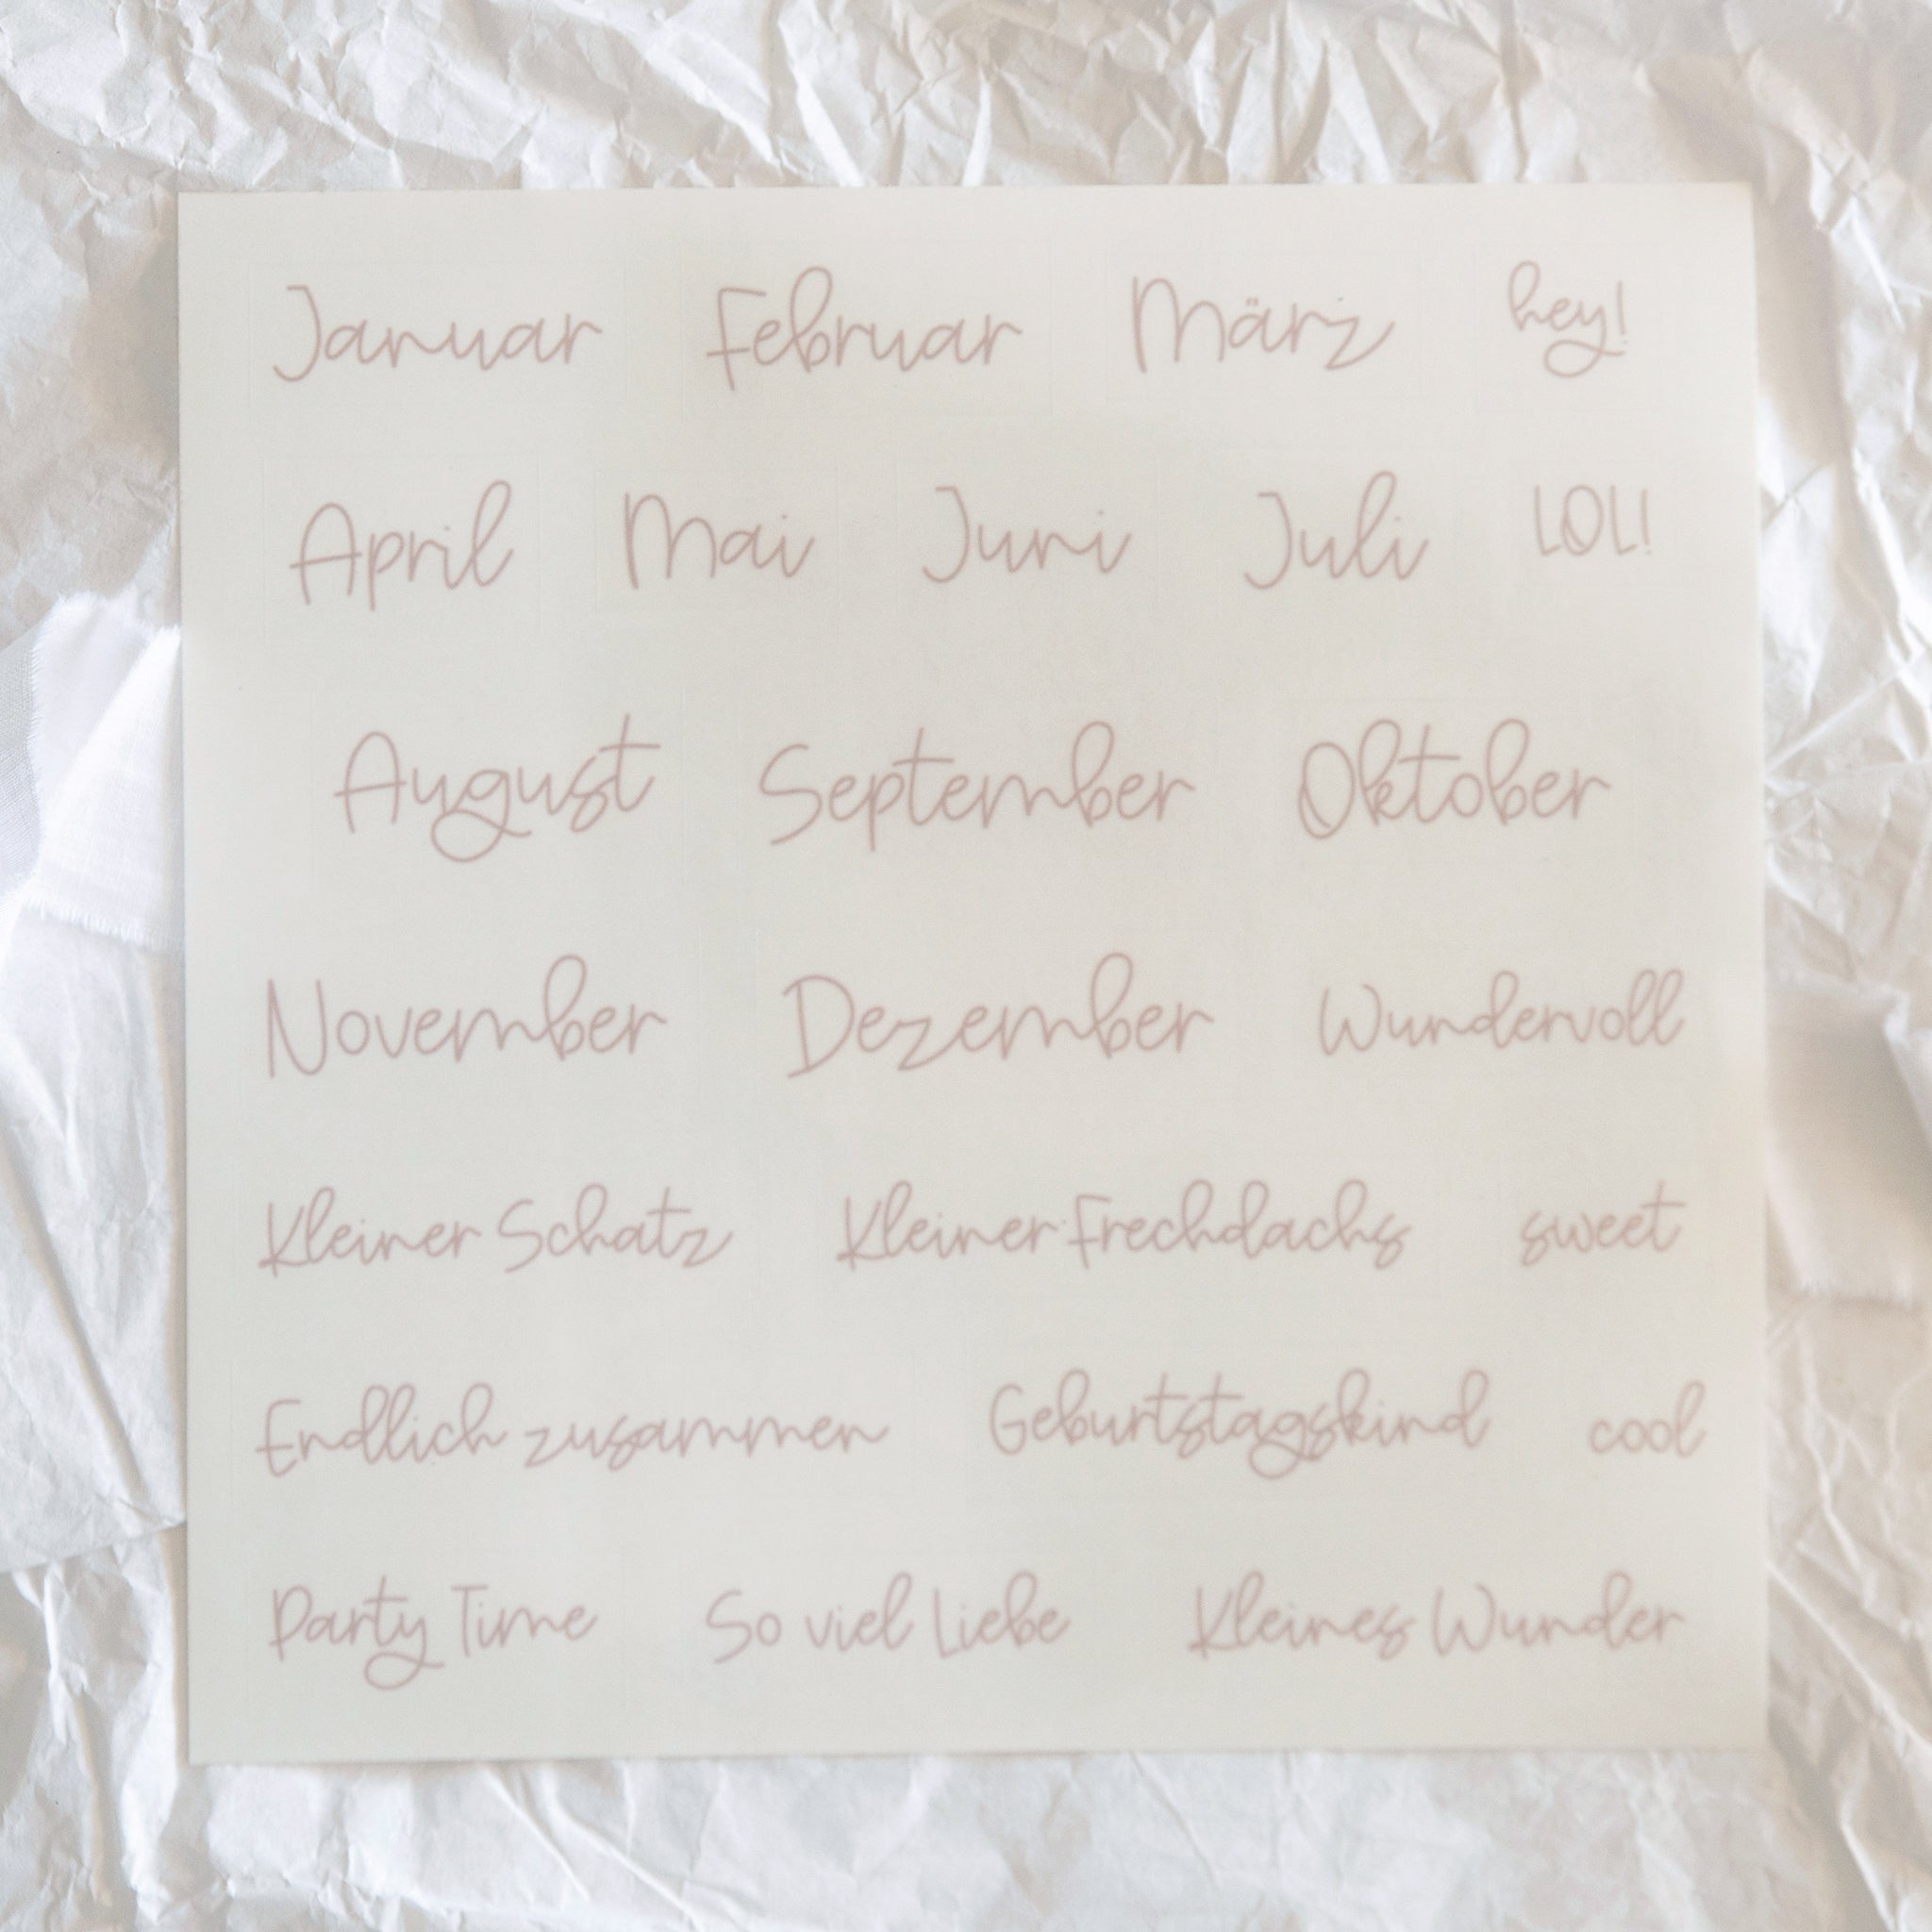 Januar Februar März hey!
April Mai Juni Juli LOL!
August September Oktober
November Dezember Wundervoll
Kleiner Schatz Kleiner Frechdachs sweet
Endlich zusammen Geburtstagskind cool
Party Time So viel Liebe Kleines Wunder